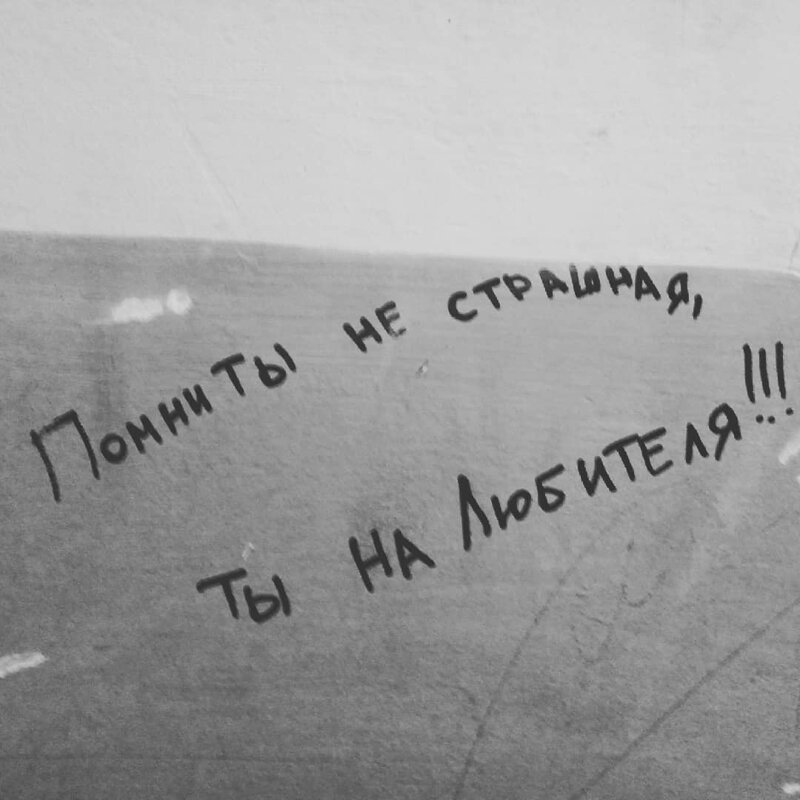 Помни ты не страшная,
ты на Любителя!!!